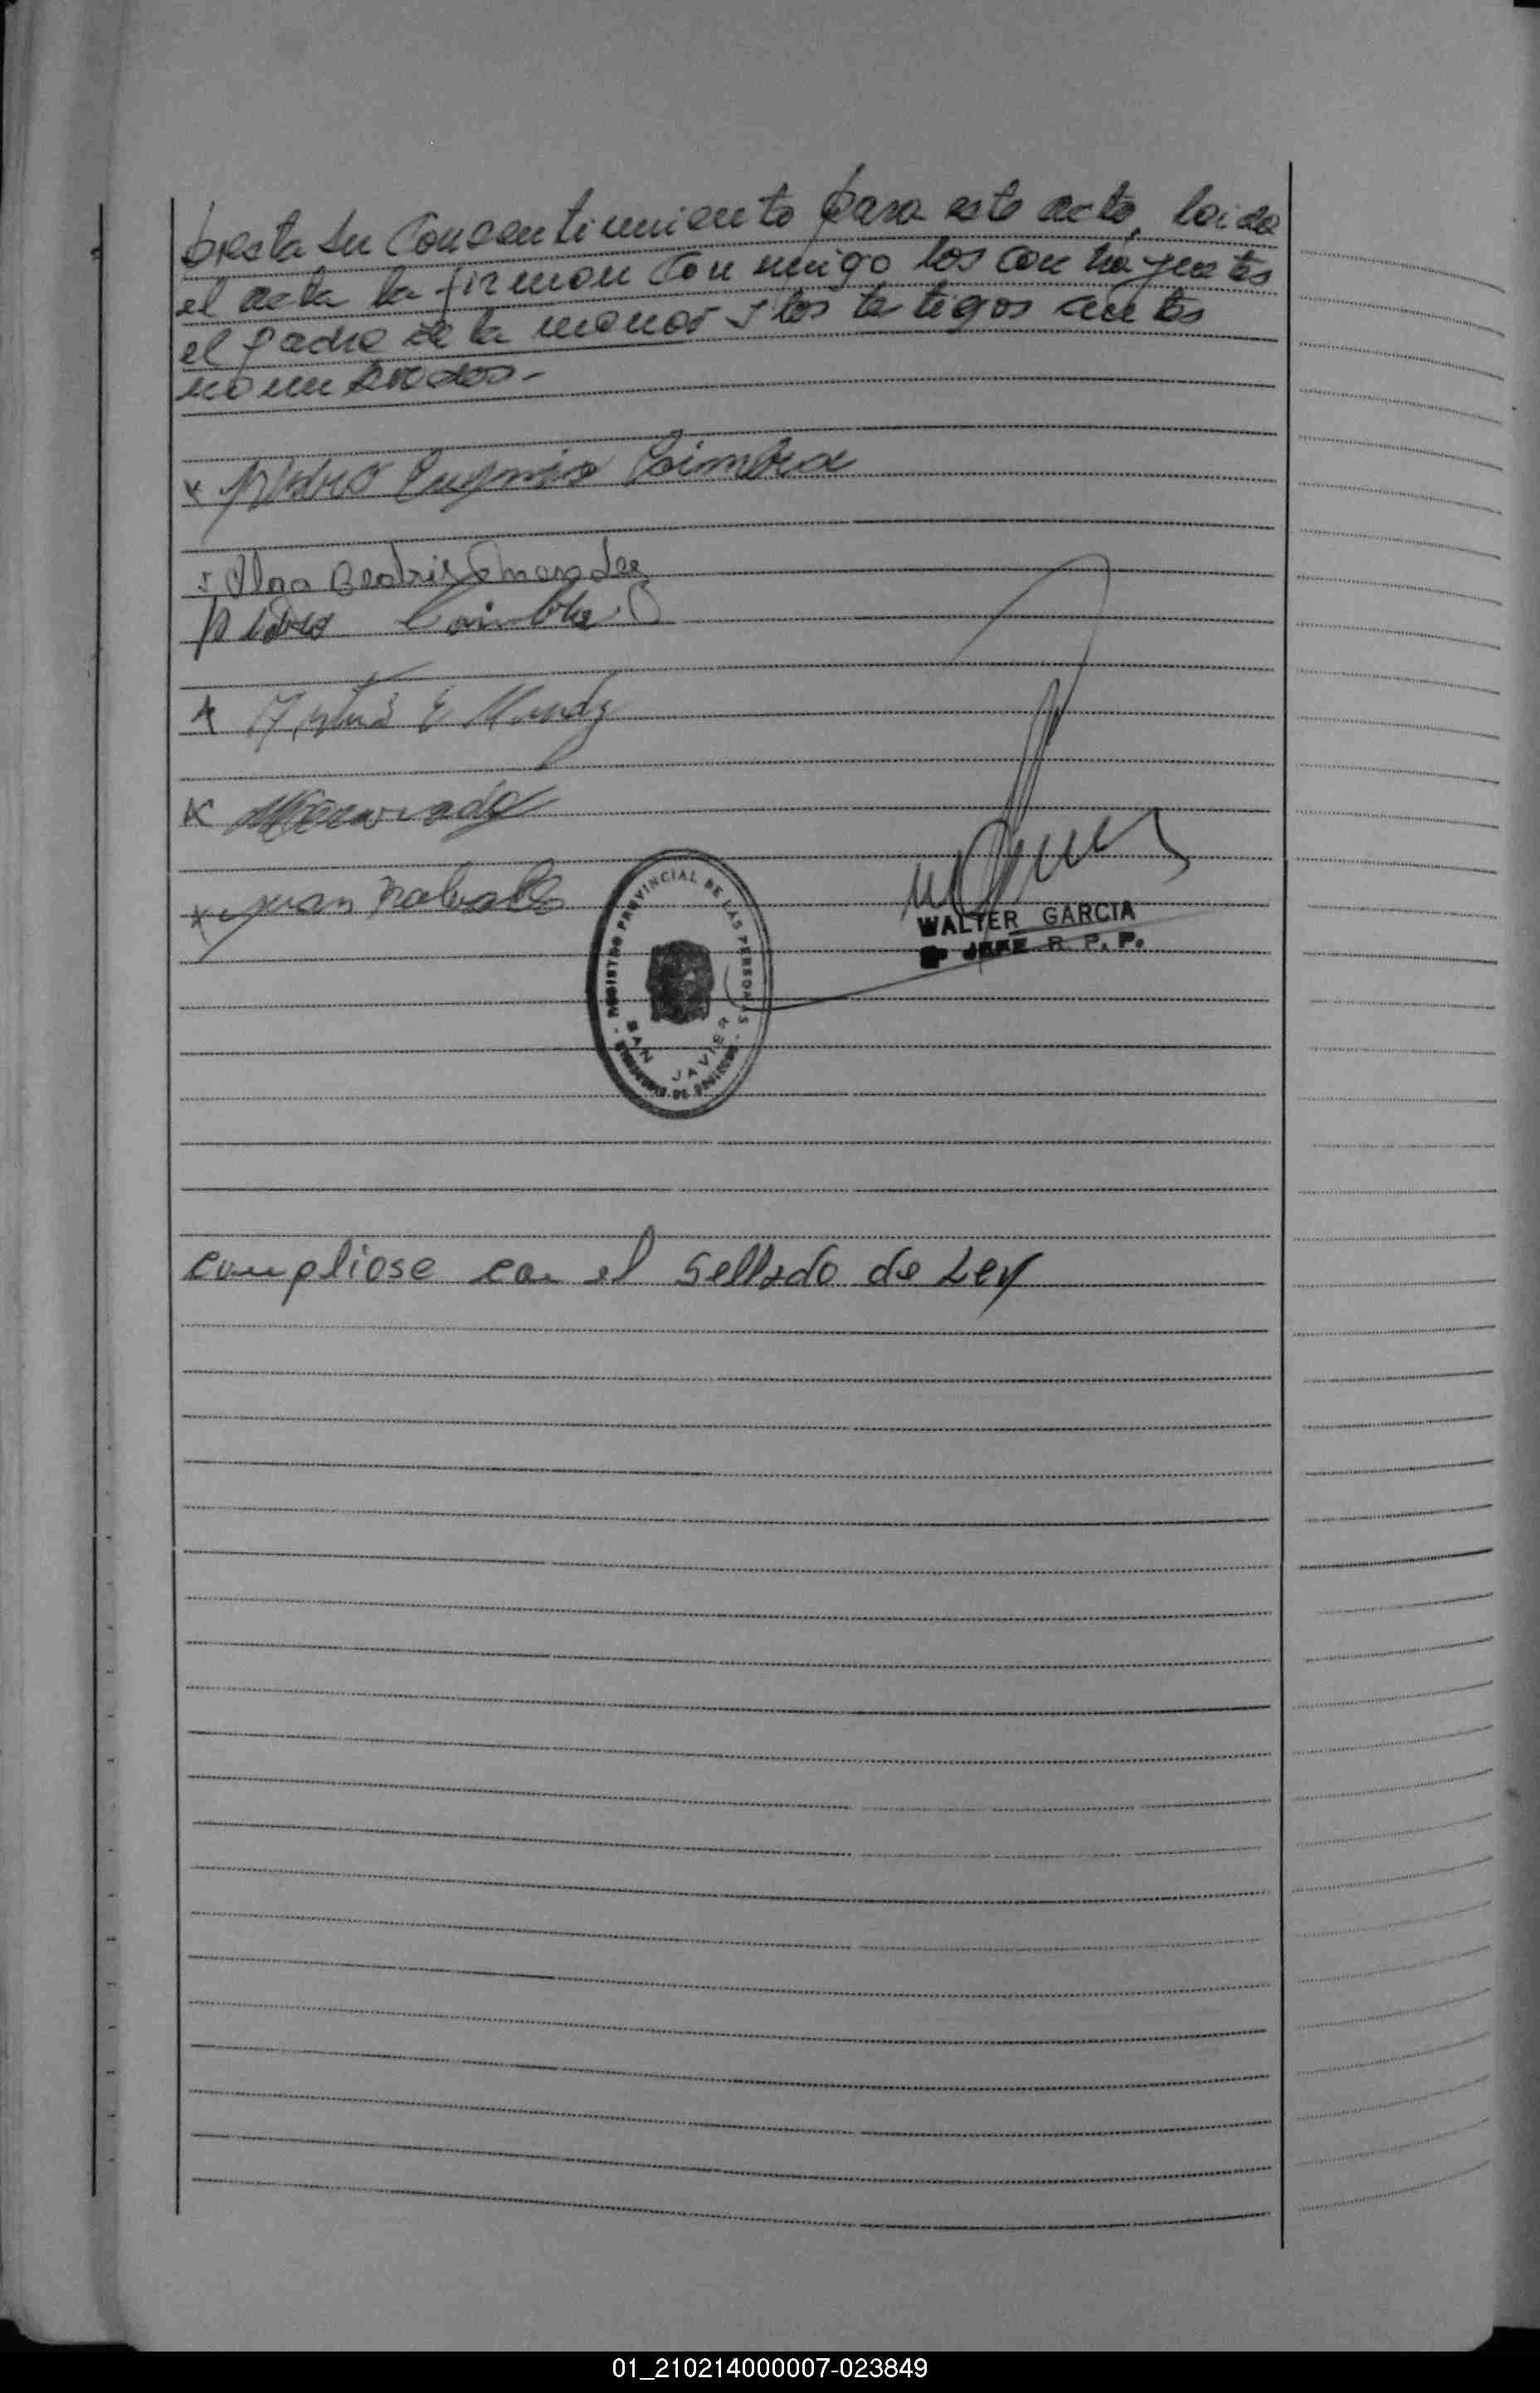 presta su consentimiento para este acto, leida
el acta la firman con migo los contrayentes
el padre de la menor y los testigos antes
nombrados.-
x Pedro Eugenio Coimbra
x Olga Beatris
Pedro Coimbra
x
x
x Juan
REGISTRO PROVINCIAL DE LAS PERSONAS
SAN JAVIER
WALTER GARCIA
JEFE R. P. P.
cumpliose con el sellado de Ley
01_210214000007-023849